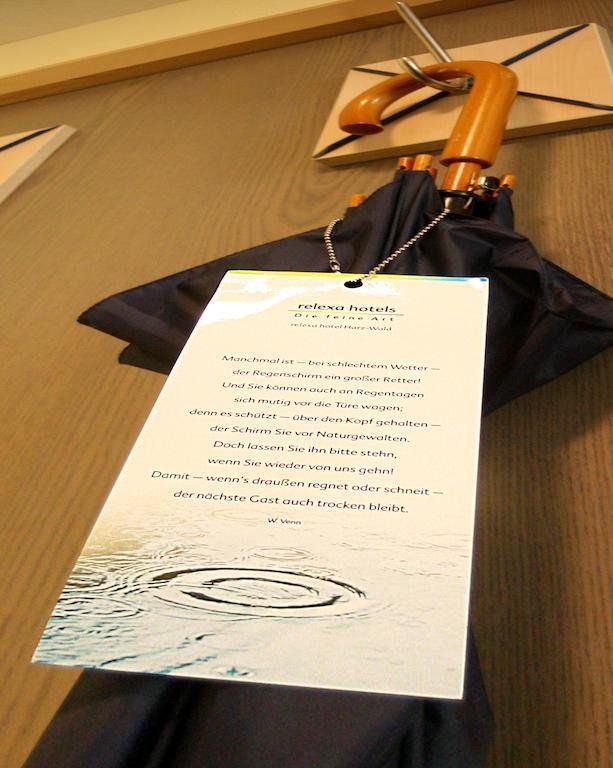 relexa hotels
Die feine Art
relexa hotel Harz-Wald
Manchmal ist – bei schlechtem Wetter –
der Regenschirm ein großer Retter!
Und Sie können auch an Regentagen
sich mutig vor die Türe wagen;
denn es schützt – über den Kopf gehalten –
der Schirm Sie vor Naturgewalten.
Doch lassen Sie ihn bitte stehn,
wenn Sie wieder von uns gehn!
Damit – wenn's draußen regnet oder schneit –
der nächste Gast auch trocken bleibt.
W. Venn